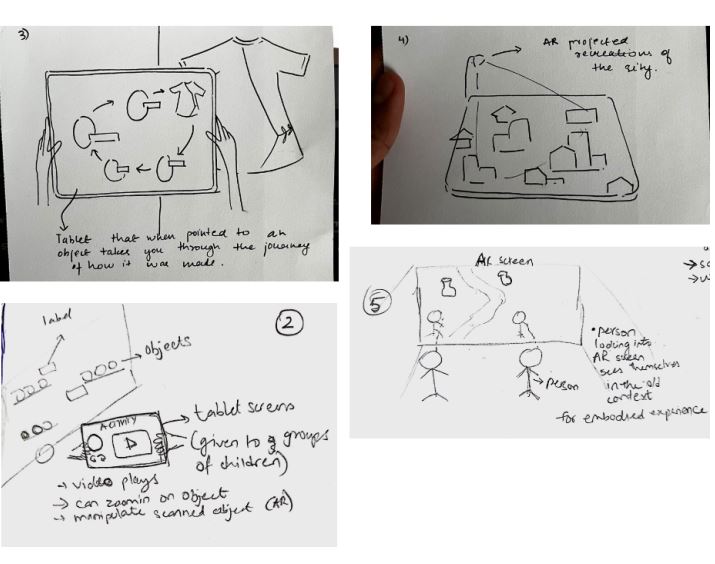 3)
Tablet that when pointed to an
object takes you through the journey
of how it was made.
4)
AR projected
recreations of
the city.
2
label
objects
ACTIVITY
tablet screens
(given to 3 groups
of children)
→ video plays
→ can zoom in on object
→ manipulate scanned object (AR)
5
AR screen
person
• person
looking into
AR screen
sees themselves
in the old
context
for embodied experience